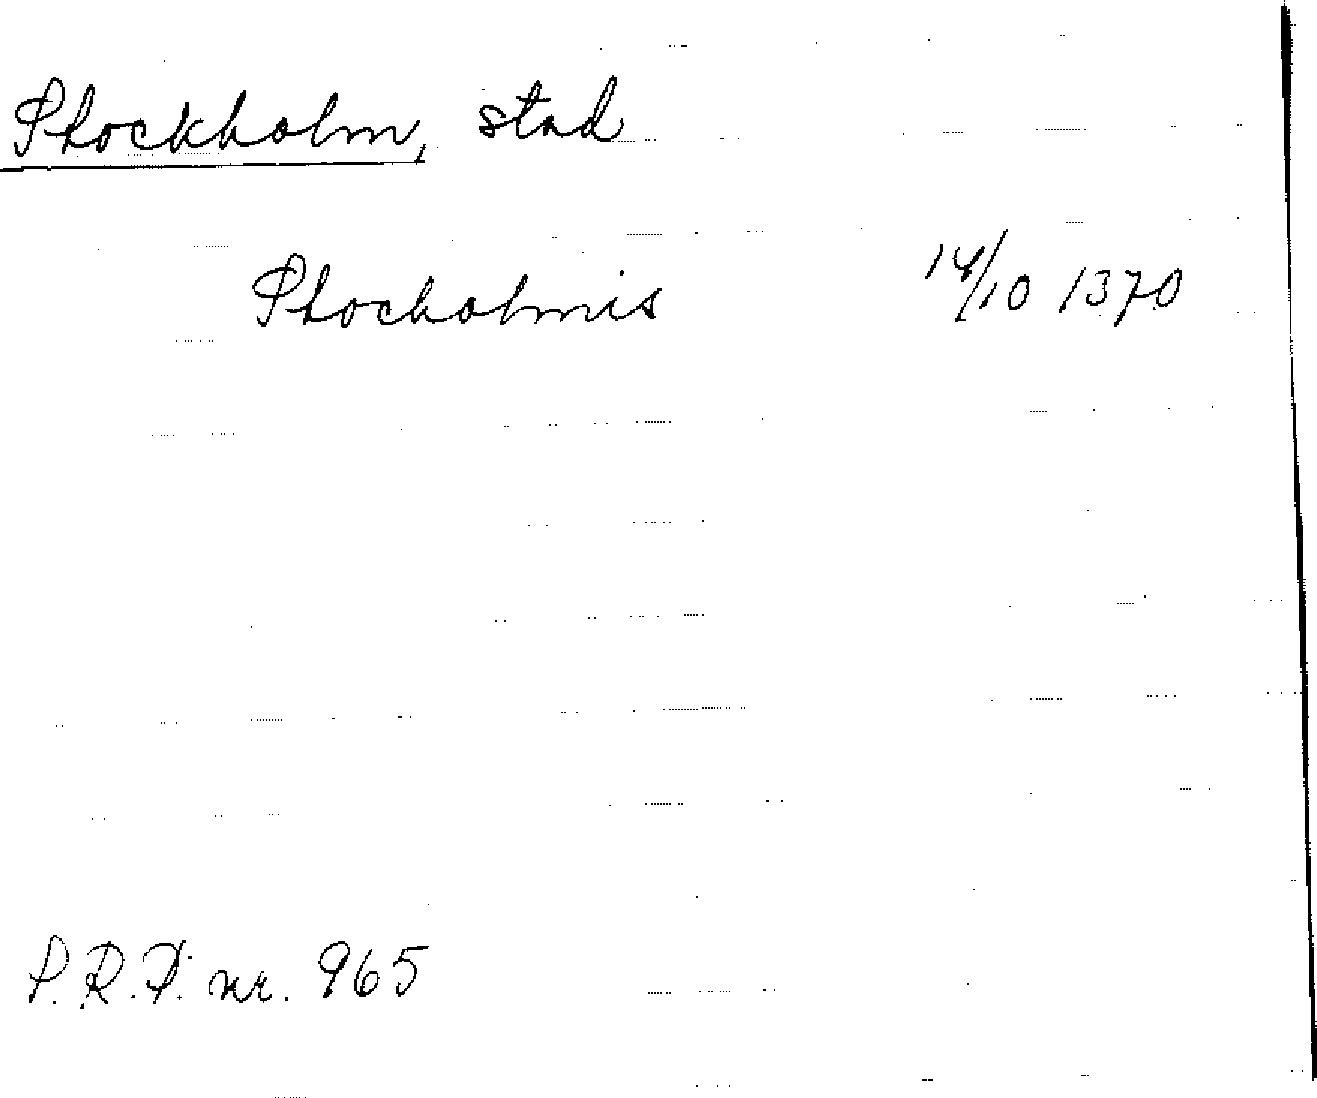 Stockholm, stad
Stocholmis 14/10 1370
S.R.P. nr. 965